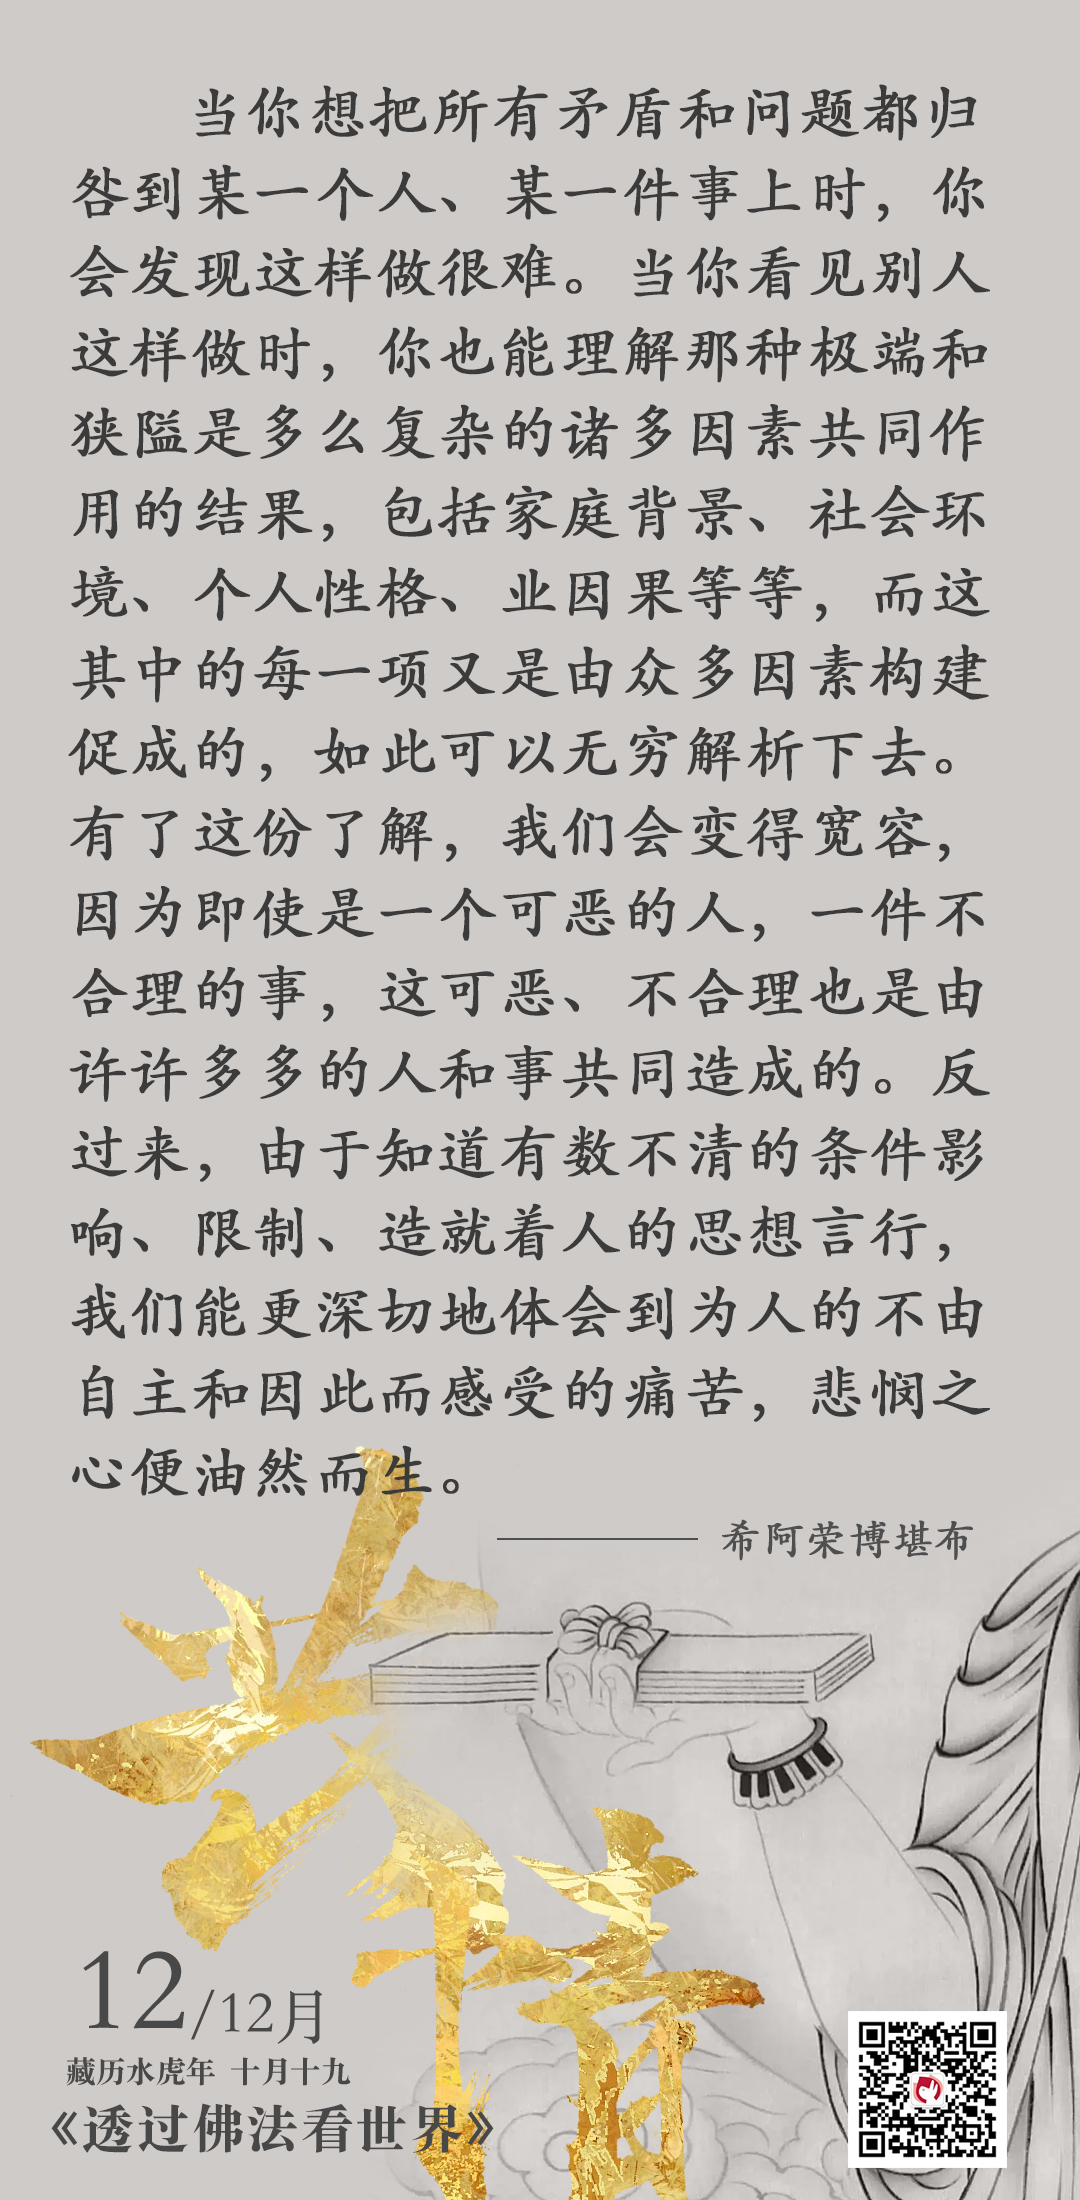 当你想把所有矛盾和问题都归
咎到某一个人、某一件事上时，你
会发现这样做很难。当你看见别人
这样做时，你也能理解那种极端和
狭隘是多么复杂的诸多因素共同作
用的结果，包括家庭背景、社会环
境、个人性格、业因果等等，而这
其中的每一项又是由众多因素构建
促成的，如此可以无穷解析下去。
有了这份了解，我们会变得宽容，
因为即使是一个可恶的人，一件不
合理的事，这可恶、不合理也是由
许许多多的人和事共同造成的。反
过来，由于知道有数不清的条件影
响、限制、造就着人的思想言行，
我们能更深切地体会到为人的不由
自主和因此而感受的痛苦，悲悯之
心便油然而生。
希阿荣博堪布
12/12月
藏历水虎年 十月十九
《透过佛法看世界》